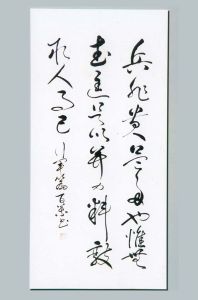 兵非貴益多也惟無
武進足以并力料敵
取人而已
行軍篇